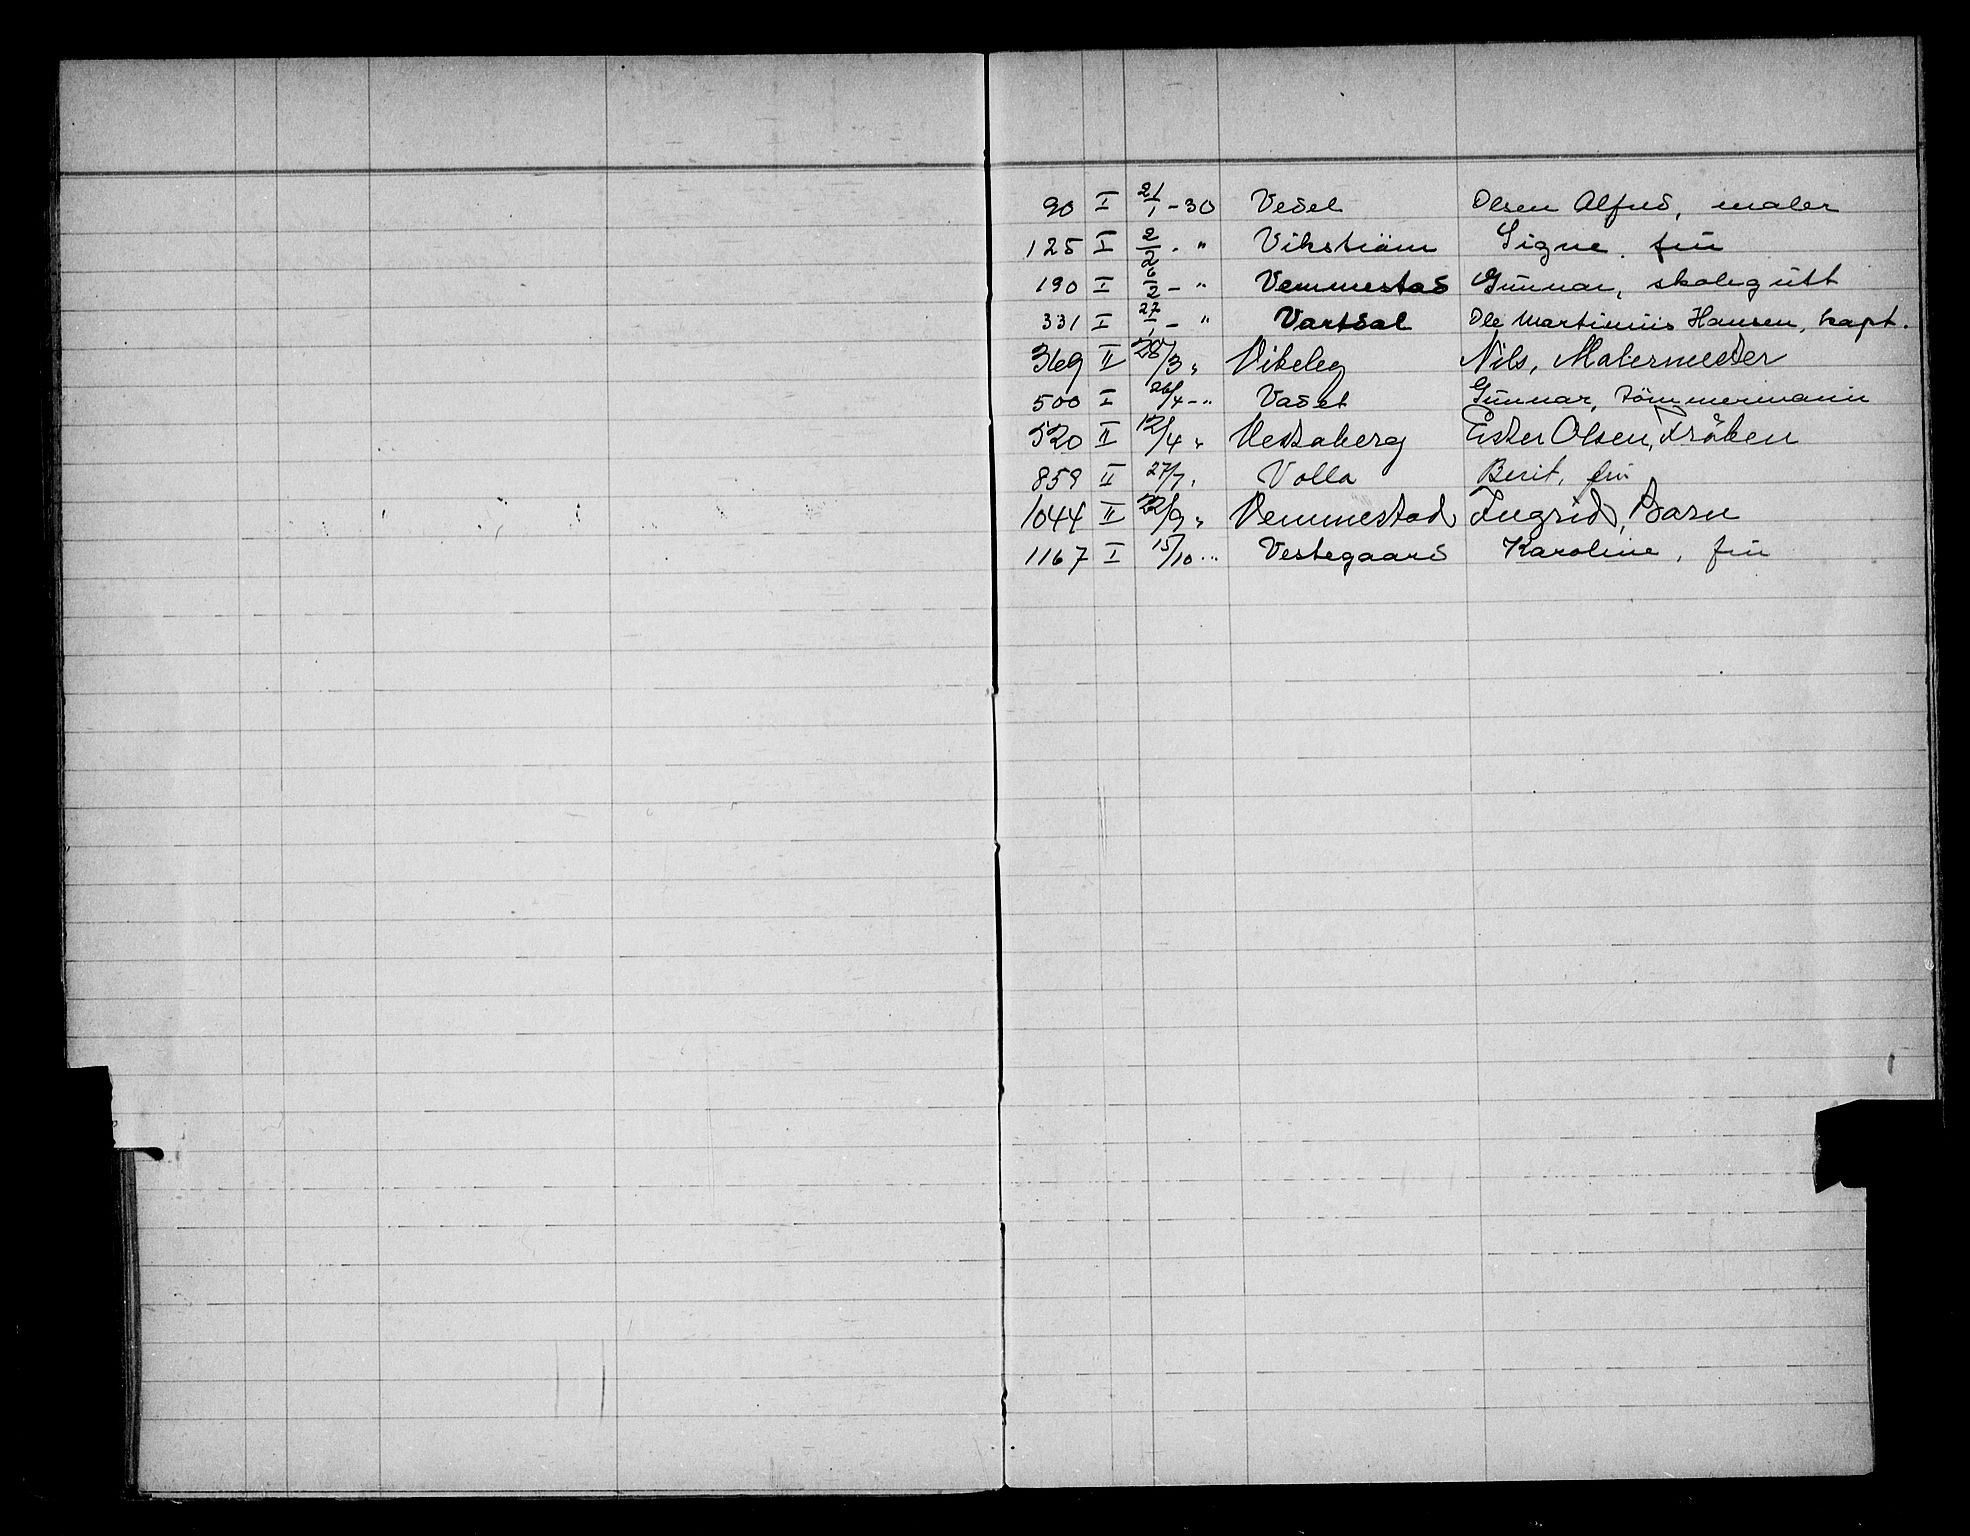 90 I 21/1 - 30 Vedel Olsen Alfred, maler
125 I 2/2 - " Vikström Signe, frú
190 I 6/2 - " Vemmestad Gunnar, skolegutt
331 I 27/1 - " Vartdal Ole Martinius Hansen, kapt.
369 II 28/3 " Vikeleg Nils, Malermester
500 I 26/4 - " Vadet Gunnar, tömmermann
520 II 12/4 " Vestaberg Ester Olsen, Fröken
859 II 27/7 " Volla Berit, frú
1044 II 22/9 " Vemmestad Ingrid, Barn
1167 I 15/10 " Vestegaard Karoline, frú